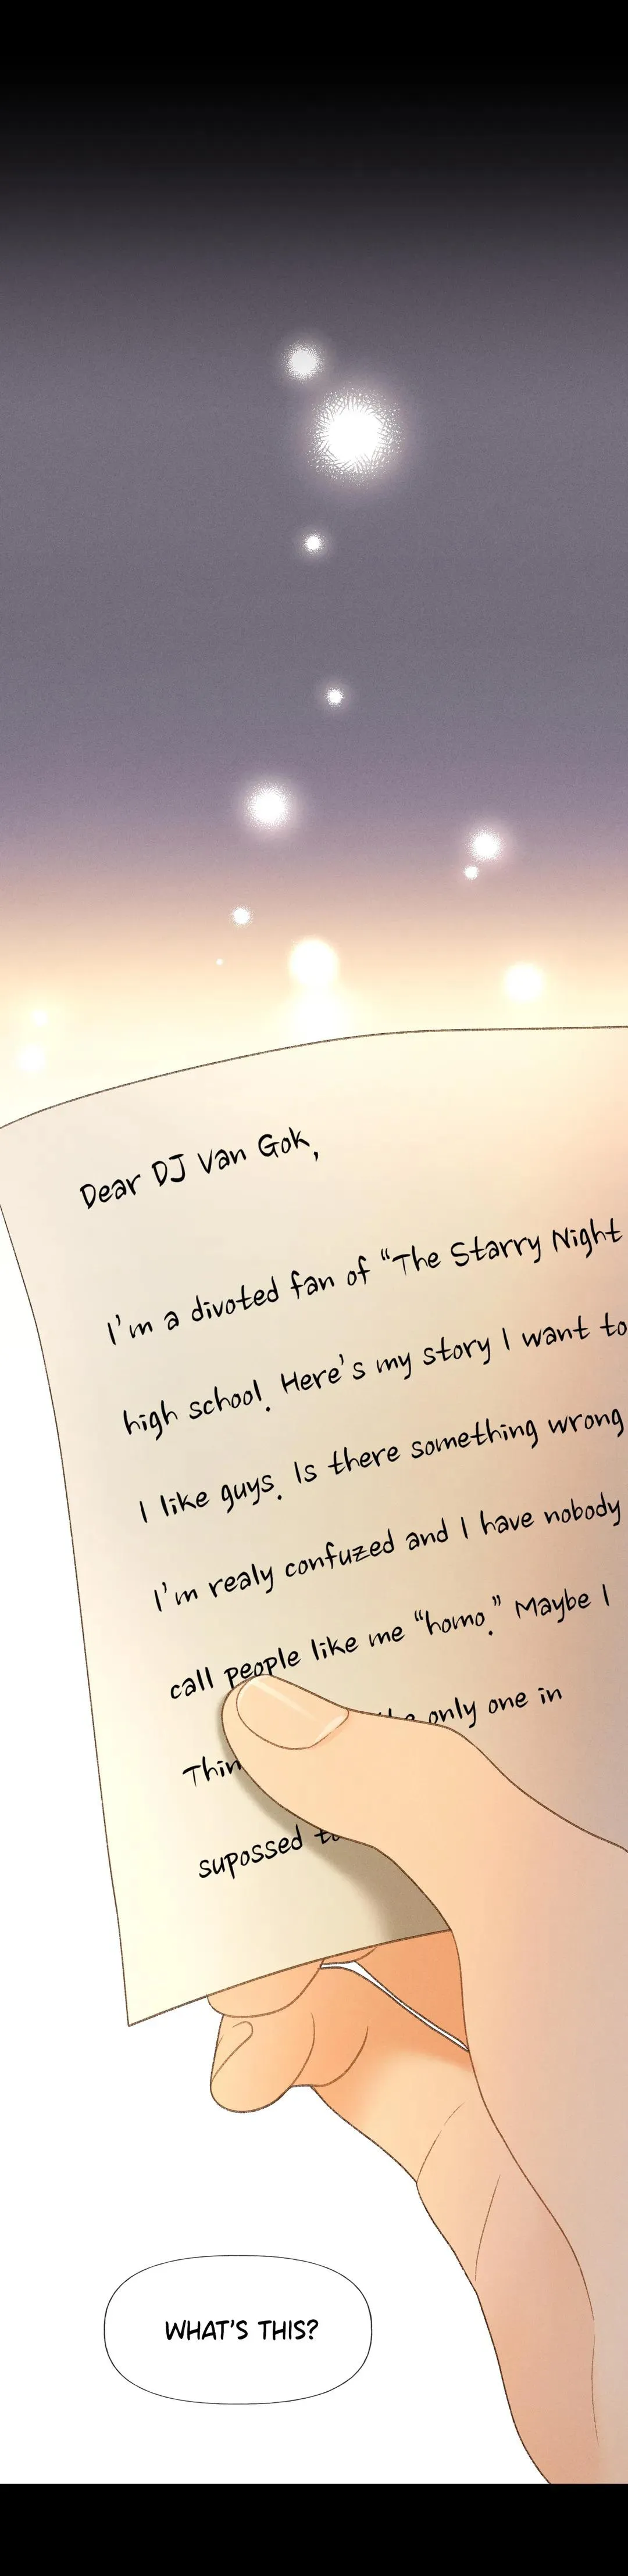 Dear DJ Van Gok,
I'm a divoted fan of "The Starry Night
high school. Here's my story I want to
I like guys. Is there something wrong
I'm realy confuzed and I have nobody
call people like me "homo." Maybe I
Thin only one in
supossed
WHAT'S THIS?